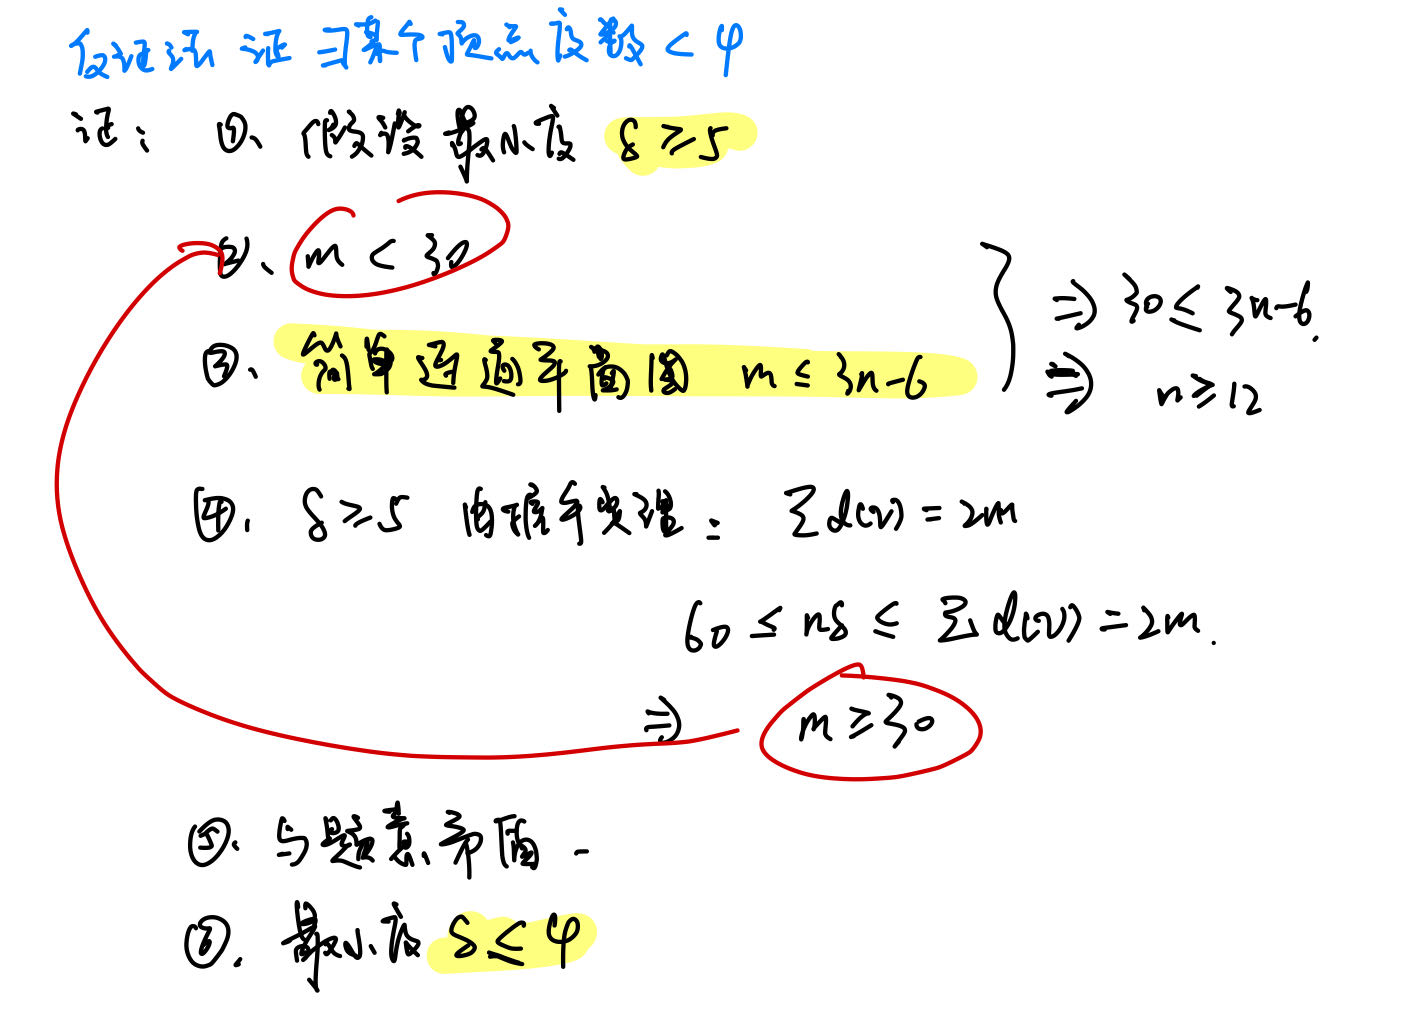 反证法 证 ∃某个顶点度数 < 4
证: ①、假设最小度 δ ≥ 5
②、m < 30
③、简单连通平面图 m ≤ 3n-6
⇒ 30 ≤ 3n-6.
⇒ n ≥ 12
④. δ ≥ 5 由握手定理: Σd(v) = 2m
60 ≤ nδ ≤ Σd(v) = 2m.
⇒ m ≥ 30
⑤. 与题意矛盾.
⑥. 最小度 δ ≤ 4